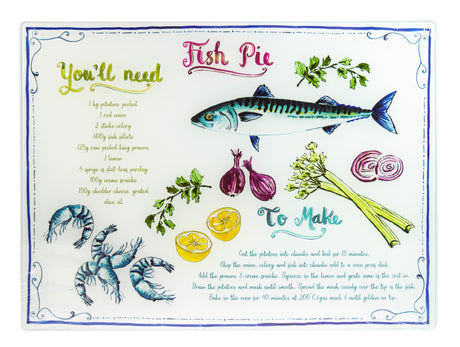 Fish Pie
You'll need
1 kg potatoes, peeled
1 red onion
2 sticks celery
600g fish fillets
125g raw peeled king prawns
1 lemon
4 sprigs of flat-leaf parsley
100g creme fraiche
150g cheddar cheese, grated
olive oil
To Make
Cut the potatoes into chunks and boil for 15 minutes.
Chop the onion, celery and fish into chunks add to a oven proof dish.
Add the prawns & creme fraiche. Squeeze in the lemon and grate some of the zest in.
Drain the potatoes and mash until smooth. Spread the mash evenly over the top of the fish.
Bake in the oven for 40 minutes at 200°C/gas mark 6 until golden on top.